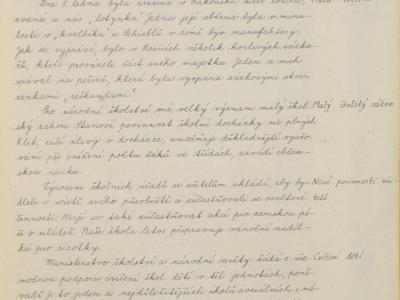 Dne 1. ledna byla zrušena v Rakousku malá loterie, nazý-
vaná u nás „lotynka". Jedna její sběrna byla v minu-
losti v „Kvelbíku" u Schieblů v domě býv. manufaktury.
Jak se vypráví, bylo v Kosicích několik horlivých sázka-
řů, kteří prosázeli část svého majetku. Jeden z nich
spával na peřině, která byla vycpána sázkovými stvrz-
zenkami „reskundumi".
Pro národní školství má velký význam malý škol- Malý školský zákon
ský zákon. Stanoví povinnost školní docházky na plných
8 let, ruší úlevy v docházce, umožňuje důkladnější vyučo-
vání při snížení počtu žáků ve třídách, zavádí občan-
skou nauku.
Výnosem školních úřadů se učitelům ukládá, aby by- Nové povinnosti uči-
dleli v místě svého působiště a zúčastňovali se osvětové telů
činnosti. Mají se také zúčastňovat akcí pro zemskou pé-
či o mládež. Naše škola letos připravuje vánoční nadíl-
ku pro sirotky.
Ministerstvo školství a národní osvěty žádá o vše- Cvičení dětí
možnou podporu cvičení škol. dětí v těl. jednotách, poně-
vadž je to jeden z nejdůležitějších úkolů sociálních i ná-